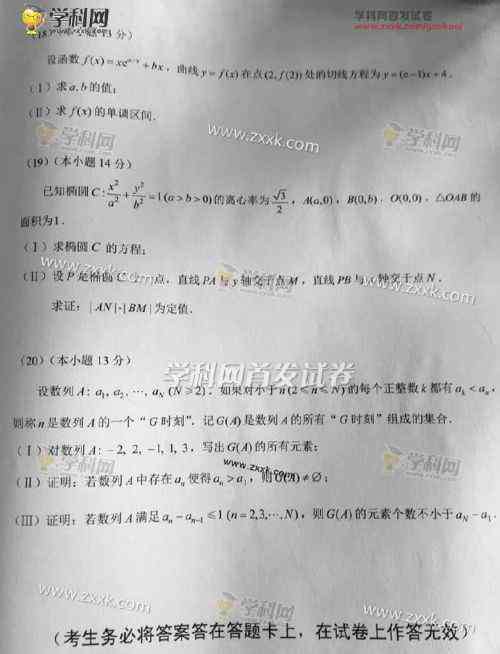 学科网
学科网首发试卷
(18) 分)
设函数 f(x)=xe^{a-x}+bx，曲线 y=f(x) 在点(2, f(2)) 处的切线方程为 y=(e-1)x+4.
(Ⅰ) 求 a, b 的值;
(Ⅱ) 求 f(x) 的单调区间.
学科网
www.zxxk.com
(19)(本小题 14 分)
已知椭圆 C: x²/a² + y²/b² = 1 (a>b>0) 的离心率为 √3/2, A(a,0), B(0,b), O(0,0), △OAB 的
面积为1.
(Ⅰ) 求椭圆 C 的方程;
(Ⅱ) 设 P 是椭圆 C 点, 直线 PA 与 y 轴交于点 M, 直线 PB 与 轴交于点 N.
求证: |AN|·|BM| 为定值.
www.zxxk.com
学科网首发试卷
(20)(本小题 13 分)
设数列 A: a₁, a₂, …, a_N (N≥2). 如果对小于 n(2≤n≤N) 的每个正整数 k 都有 a_k<a_n,
则称 n 是数列 A 的一个 “G 时刻”. 记 G(A) 是数列 A 的所有 “G 时刻” 组成的集合.
(Ⅰ) 对数列 A: -2, 2, -1, 1, 3, 写出 G(A) 的所有元素;
www.zxxk.com
(Ⅱ) 证明: 若数列 A 中存在 a_n 使得 a_n>a₁, 则 G(A)≠∅;
(Ⅲ) 证明: 若数列 A 满足 a_n-a_{n-1}≤1 (n=2,3,…,N), 则 G(A) 的元素个数不小于 a_N-a₁.
www.zxxk.com
学科网
www.zxxk.com
(考生务必将答案答在答题卡上, 在试卷上作答无效)